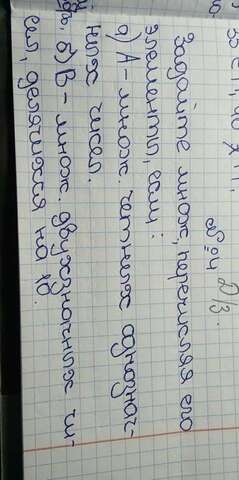 Д/З.
№4
Задайте множ, перечисляя его
элементы, если:
а) А - множ. четных однознач-
ных чисел.
б) В - множ. двузначных чи-
сел, делящихся на 10.